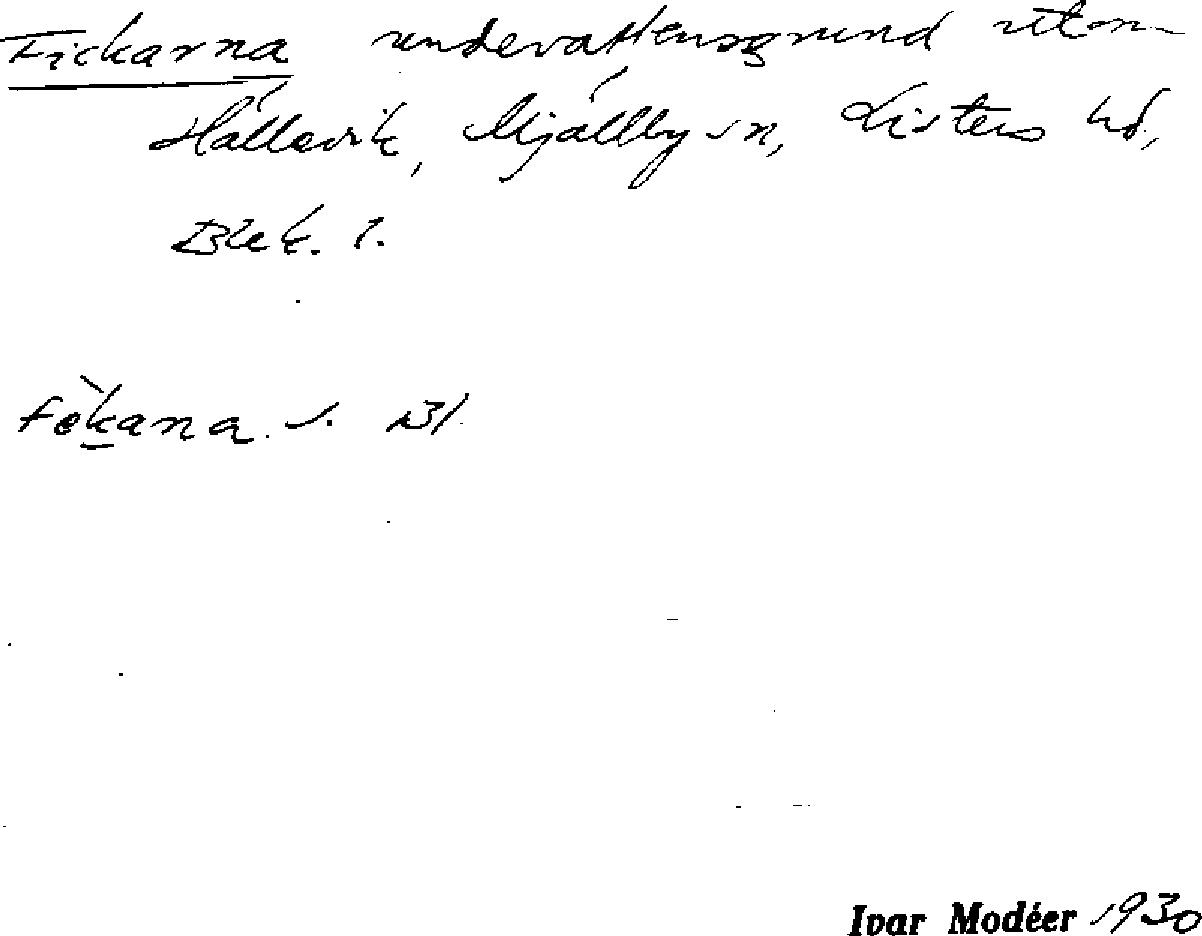 Fickarna undervattensgrund utom
Hällevik, Mjällby sn, Listers hd,
Blek. l.
fèkana. s. Bl.
Ivar Modéer 1930